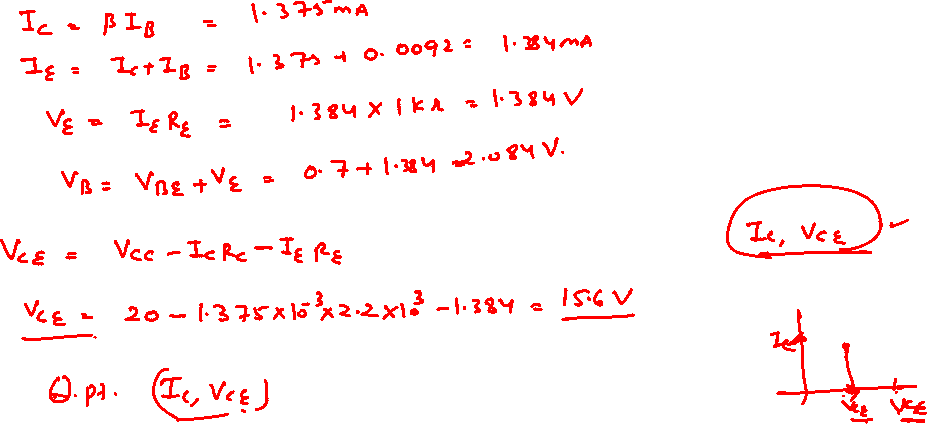 I_C = βI_B = 1.375 mA
I_E = I_C + I_B = 1.375 + 0.0092 = 1.384 mA
V_E = I_E R_E = 1.384 × 1kΩ = 1.384 V
V_B = V_BE + V_E = 0.7 + 1.384 = 2.084 V.
I_C, V_CE
V_CE = V_CC - I_C R_C - I_E R_E
V_CE = 20 - 1.375 × 10^-3 × 2.2 × 10^3 - 1.384 = 15.6 V
I_C
Q.pt. (I_C, V_CE)
V_CE V_CE